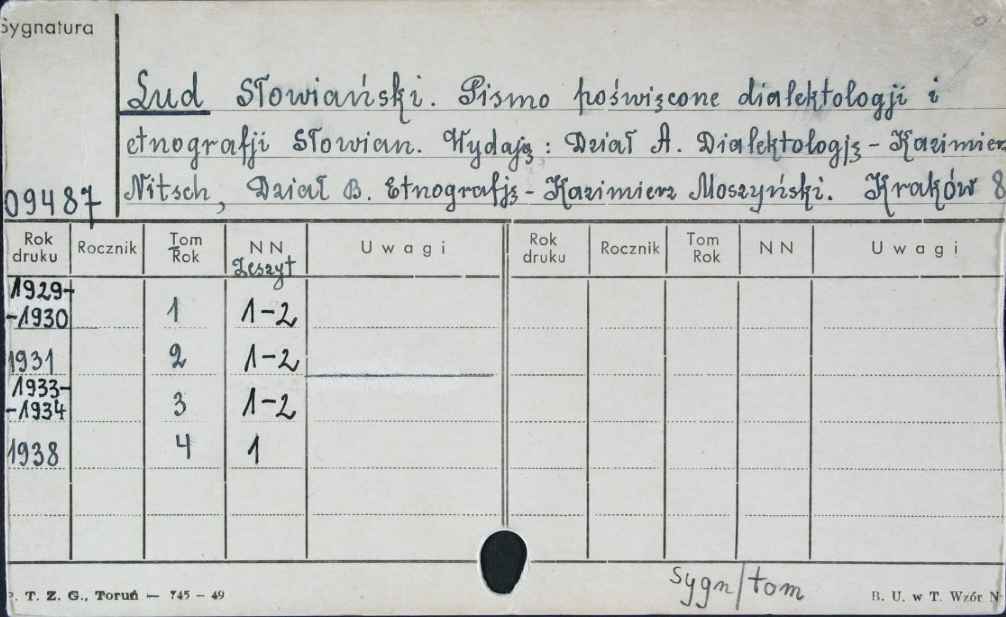 Sygnatura
Lud Słowiański. Pismo poświęcone dialektologji i
etnografji Słowian. Wydają: Dział A. Dialektologję - Kazimierz
09487 Nitsch, Dział B. Etnografję - Kazimierz Moszyński. Kraków 8
Rok druku Rocznik Tom Rok NN Zeszyt Uwagi Rok druku Rocznik Tom Rok NN Uwagi
1929-
-1930 1 1-2
1931 2 1-2
1933-
-1934 3 1-2
1938 4 1
sygn/tom
P. T. Z. G., Toruń — 745 - 49 B. U. w T. Wzór N